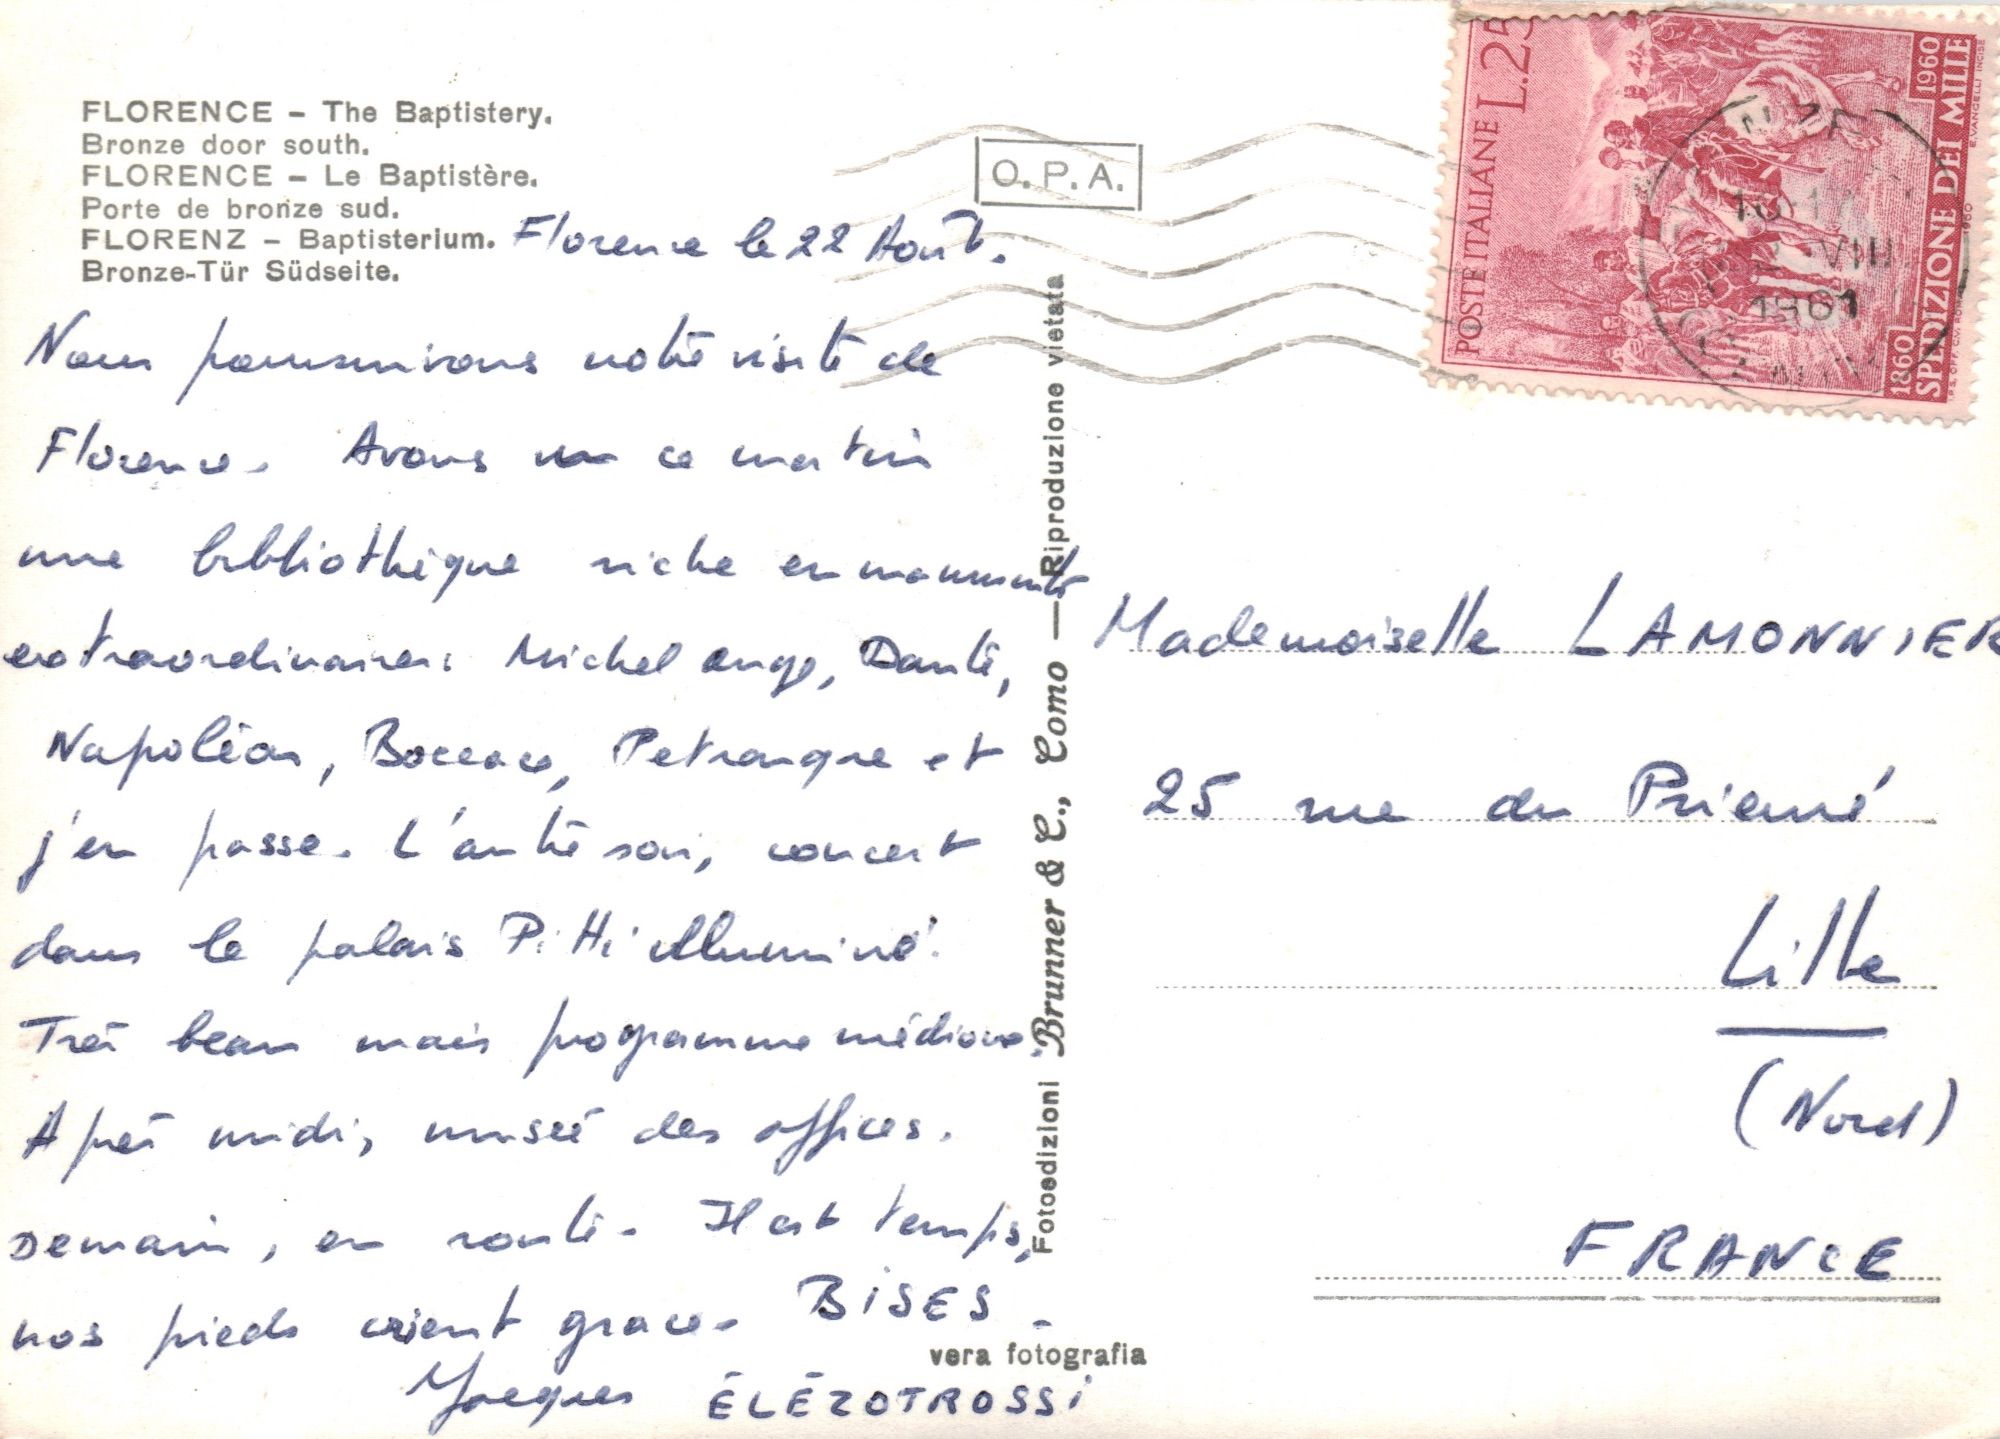 FLORENCE – The Baptistery.
Bronze door south.
FLORENCE – Le Baptistère.
Porte de bronze sud.
FLORENZ – Baptisterium.
Bronze-Tür Südseite.
Florence le 22 Août.
Nous poursuivons notre visite de
Florence. Avons vu ce matin
une bibliothèque riche en manuscrits
extraordinaires: Michel ange, Dante,
Napoléon, Boccace, Petrarque et
j'en passe. L'autre soir, concert
dans le palais Pitti illuminé.
Très beau mais programme médiocre.
Après midi, musée des offices.
Demain, en route. Il est temps,
nos pieds crient grace. BISES
Jacques ÉLÉZOTROSSI
O.P.A.
Fotoedizioni Brunner & C., Como — Riproduzione vietata
vera fotografia
POSTE ITALIANE L.25
1860 1960
SPEDIZIONE DEI MILLE
E. VANGELLI INCISE
VIII
1961
Mademoiselle LAMONNIER
25 rue du Prieuré
Lille
(Nord)
FRANCE